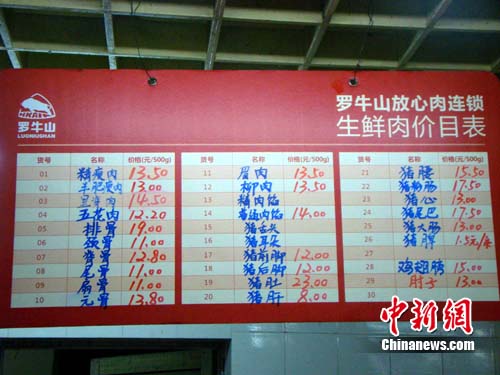 罗牛山
LUONIUSHAN
罗牛山放心肉连锁
生鲜肉价目表
货号 名称 价格(元/500g)
01 精瘦肉 13.50
02 13.00
03 14.50
04 五花肉 12.20
05 排骨 19.00
06 颈骨 11.00
07 脊骨 12.80
08 尾骨 11.00
09 扇骨 11.00
10 元骨 13.80
货号 名称 价格(元/500g)
11 眉肉 13.50
12 柳肉 13.50
13 精肉馅
14 普通肉馅 14.00
15 猪舌头
16 猪耳朵
17 猪前脚 12.00
18 猪后脚 12.00
19 猪肚 23.00
20 猪肝 8.00
货号 名称 价格(元/500g)
21 猪腰 15.50
22 猪粉肠 17.50
23 猪心 13.00
24 猪尾巴 17.50
25 猪大肠 13.00
26 猪脾 1.5元/条
27
28 鸡翅膀 15.00
29 肘子 13.00
30
中新网
Chinanews.com